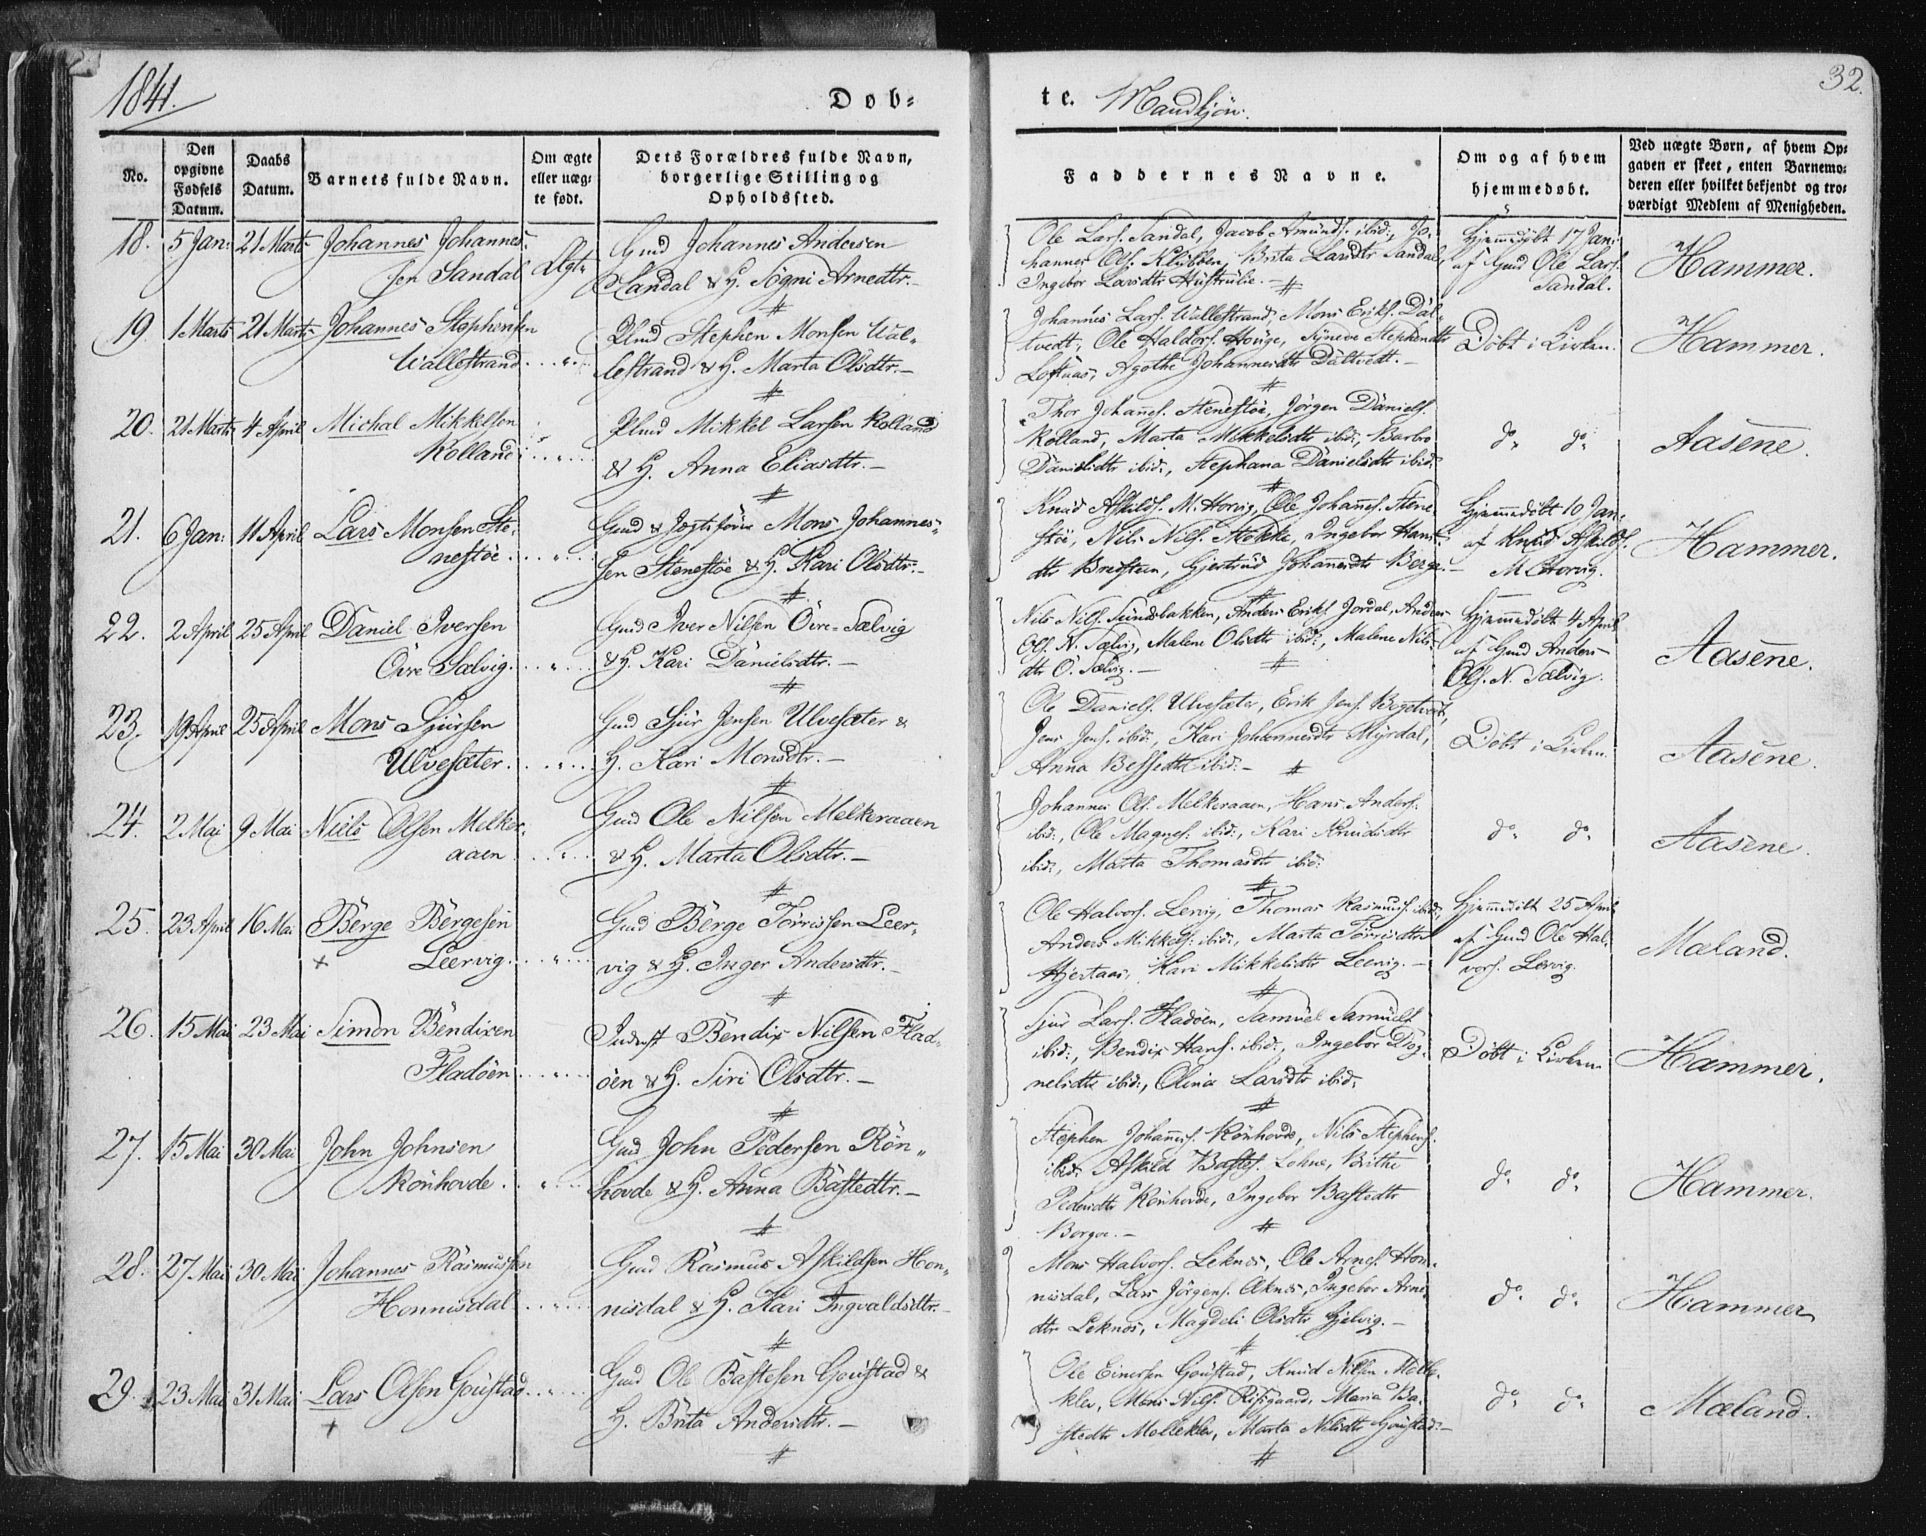 1841.
Døb-
te. Mandkjön.
32.
No.
Den opgivne Fødsels Datum.
Daabs Datum.
Barnets fulde Navn.
Om ægte eller uæg-te født.
Dets Forældres fulde Navn, borgerlige Stilling og Opholdssted.
Faddernes Navne.
Om og af hvem hjemmedøbt.
Ved uægte Børn, af hvem Op-gaven er skeet, enten Barnemo-deren eller hvilket bekjendt og tro-værdigt Medlem af Menigheden.
18. 5 Jan: 21 Marts Johannes Johannes-
sen Sandal Ægte
Gmd Johannes Andersen
Sandal & H. Sögni Arnedtr.
Ole Lars. Sandal, Jacob Amunds. ibid:, Jo-
hannes Ols. Klubben, Brita Larsdtr Sandal,
Ingebor Larsdtr Hustrulie.
Hjemmedöbt 17 Jan:
af Gmd Ole Lars.
Sandal.
Hammer.
19. 1 Marts 21 Marts Johannes Stephensen
Wallestrand
Plmd Stephen Monsen Wal-
lestrand & H. Marta Olsdtr.
Johannes Lars. Wallestrand, Mons Eriks. Dal-
tvedt, Ole Haldors. Houge, Synneve Stephensdtr
Loftaas, Agothe Johannesdtr Daltvedt.
Döbt i Kirken.
Hammer.
20. 21 Marts 4 April Michal Mikkelsen
Kolland
Plmd Mikkel Larsen Kolland
& H. Anna Eliasdtr.
Thor Johans. Stenestöe, Jörgen Daniels.
Kolland, Marta Mikkelsdtr ibid:, Barbro
Danielsdtr ibid:, Stephana Danielsdtr ibid:
do do
Aasene.
21. 6 Jan: 11 April Lars Monsen Ste-
nestöe
Gmd & Jagtskprr Mons Johannes-
sen Stenestöe & H. Kari Olsdtr.
Knud Askilds. M. Horvig, Ole Johans. Stene-
stöe, Nils Nils. Stekke, Ingebor Hans-
dtr Bredsteen, Gjertrud Johannesdtr Berge.
Hjemmedöbt 10 Jan:
af Knud Askilds.
M. Horvig.
Hammer.
22. 2 April 25 April Daniel Iversen
Övre Sælvig
Gmd Iver Nilsen Övre-Sælvig
& H. Kari Danielsdtr.
Nils Nils. Sundsbakken, Anders Eriks. Jordal, Anders
Ols. N. Sælvig, Malene Olsdtr ibid:, Malene Nils-
dtr O. Sælvig.
Hjemmedöbt 4 April
af Gmd Anders
Ols. N. Sælvig.
Aasene.
23. 19 April 25 April Mons Sjursen
Ulvesæter
Gmd Sjur Jensen Ulvesæter &
H. Kari Monsdtr.
Ole Daniels. Ulvesæter, Erik Jens. Bogetvedt,
Jens Jens. ibid:, Kari Johannesdtr Myrdal,
Anna ibid:
Döbt i Kirken
Aasene.
24. 2 Mai 9 Mai Niels Olsen Melker-
aaen
Gmd Ole Nilsen Melkeraaen
& H. Marta Olsdtr.
Johannes Ols. Melkeraaen, Hans Anders.
ibid:, Ole Magnes. ibid:, Kari Knudsdtr
ibid:, Marta Thomasdtr ibid:
do do
Aasene.
25. 23 April 16 Mai Berge Bergesen
× Leervig
Gmd Berge Torrissen Leer-
vig & H. Inger Andersdtr.
Ole Halvors. Lervig, Thomas Rasmus. ibid:,
Anders Mikkels. ibid:, Marta Torrisdtr
Hjertaas, Kari Mikkelsdtr Leervig.
Hjemmedöbt 25 April
af Gmd Ole Hal-
vors. Lervig.
Mæland.
26. 15 Mai 23 Mai Simon Bendixen
Fladöen
Inderst Bendix Nilsen Flad-
öen & H. Siri Olsdtr.
Sjur Lars. Fladöen, Samuel Samuels.
ibid:, Bendix Hans. ibid:, Ingebor Dög-
nelsdtr ibid:, Olina Larsdtr ibid:
Döbt i Kirken
Hammer.
27. 15 Mai 30 Mai John Johnsen
Rönhovde
Gmd John Pedersen Rön-
hovde & H. Anna Bastedtr.
Stephen Johans. Rönhovde, Nils Stephens.
ibid: Askild Bastes. Lohne, Brithe
Pedersdtr Rönhovde, Ingebor Bastedtr
Borge.
do do
Hammer.
28. 27 Mai 30 Mai Johannes Rasmussen
Honnisdal
Gmd Rasmus Askildsen Hon-
nisdal & H. Kari Ingvaldsdtr.
Mons Halvors. Leknes, Ole Arnes. Hon-
nisdal, Lars Jörgens. Eknes, Ingebor Arne-
dtr Leknes, Magdeli Olsdtr Hjelvig.
do do
Hammer
29. 23 Mai 31 Mai Lars Olsen Goustad
×
Gmd Ole Bastesen Goustad &
H. Brita Andersdtr.
Ole Einersen Goustad, Knud Nilsen Molle-
klev, Mons Nils. Riisgaard, Maria Ba-
stedtr Molleklev, Marta Nilsdtr Goustad.
do do
Mæland.